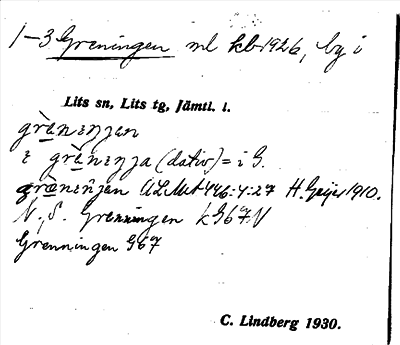 1-3 Greningen ml kb 1926, by i
Lits sn, Lits tg, Jämtl. l.
grèneŋen
i grèneŋa (dativ) = i G.
grèneŋen ULMA 446:4:27 H. Geijer 1910.
N., S. Grenningen k G67V
Grenningen G67
C. Lindberg 1930.